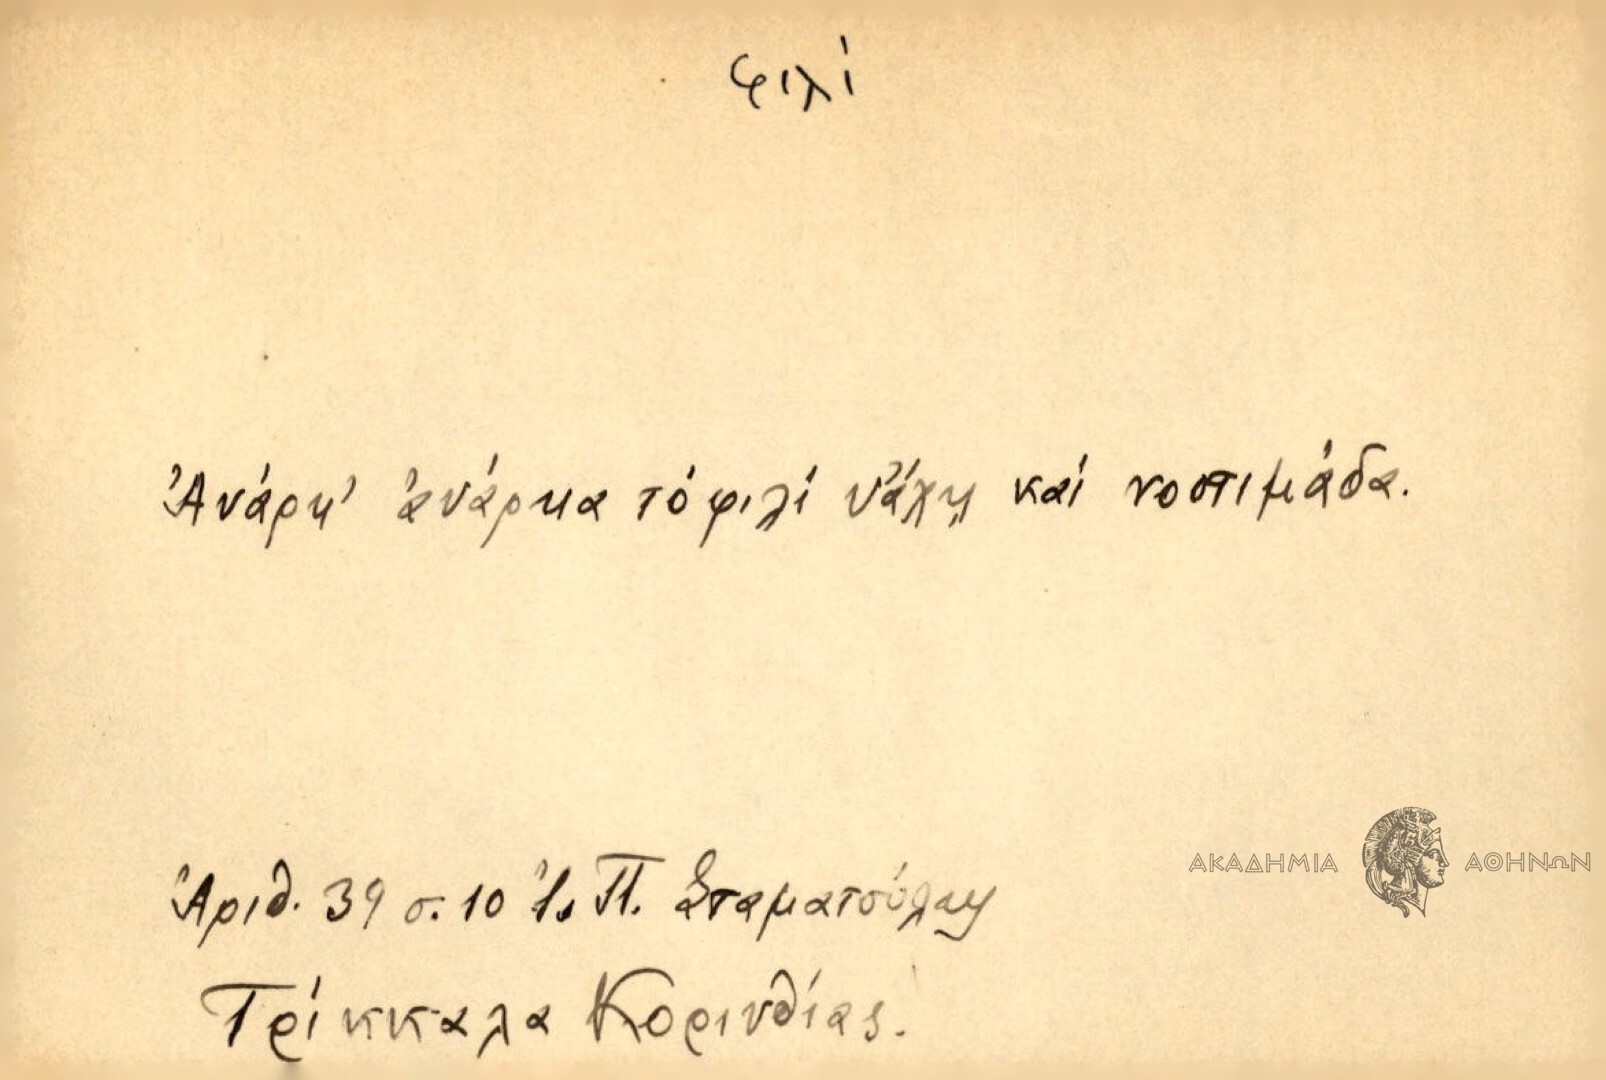 φιλί
Ἀνάρι' ἀνάρια τό φιλί νἄχῃ καί νοστιμάδα.
Ἀριθ. 39 σ. 10 Ἰ. Π. Σταματούλη
Τρίκκαλα Κορινθίας.
ΑΚΑΔΗΜΙΑ ΑΘΗΝΩΝ